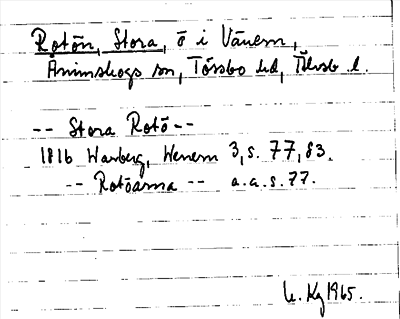 Rotön, Stora, ö i Vänern,
Ånimskogs sn, Tössbo hd, Älvsb l.
-- Stora Rotö --
1816 Warberg, Wenern 3, s. 77, 83.
-- Rotöarna -- a.a.s. 77.
Kg 1965.